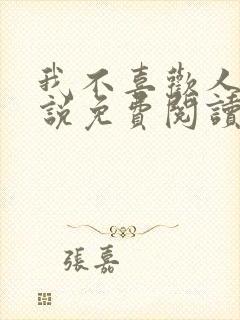 我不喜歡人
說免費閱讀
張嘉